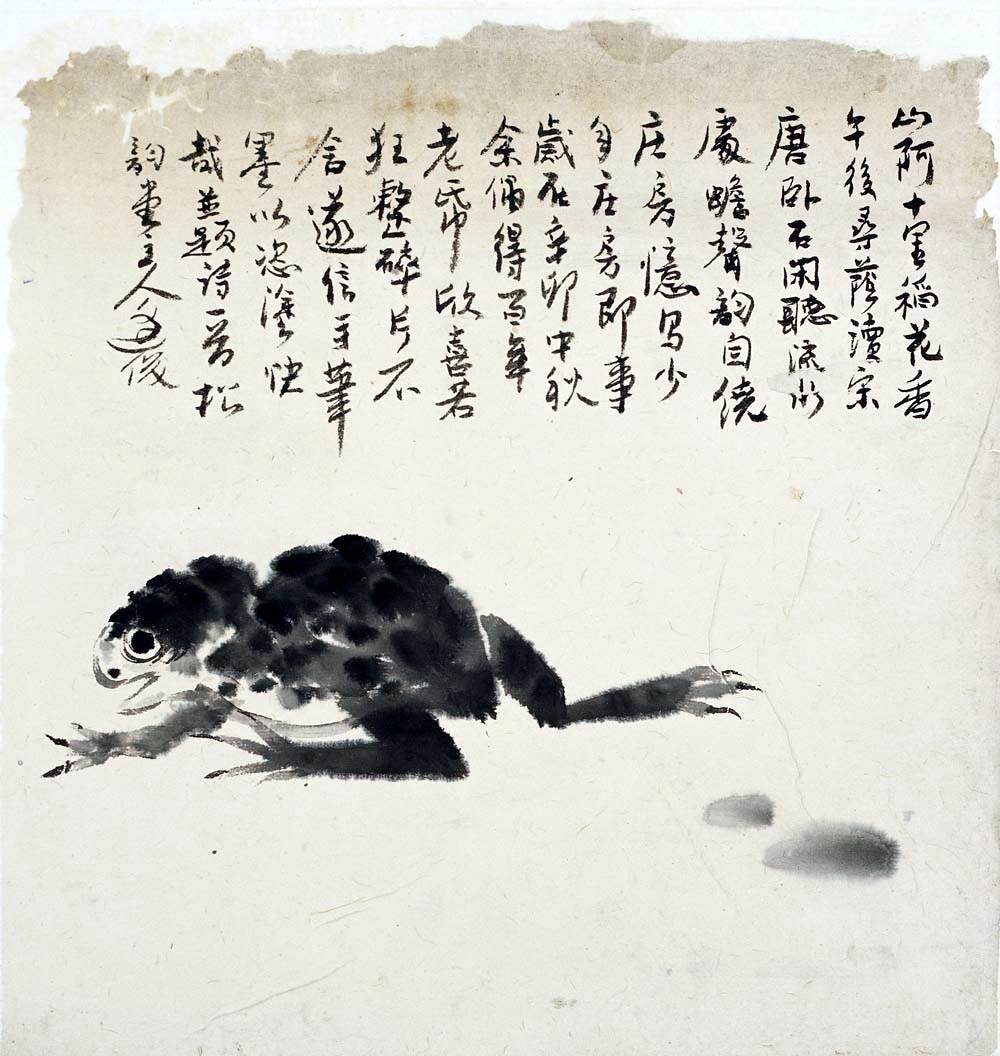 山阿十里稻花香
午後尋蔭讀宋
唐卧石閑聽流水
處蟾聲韵自繞
庄房憶寫少
年庄房即事
歲在辛卯中秋
余偶得百年
老紙欣喜若
狂整碎片不
舍遂信手筆
墨以恣塗快
哉並題詩一首松
韵堂主人逸後